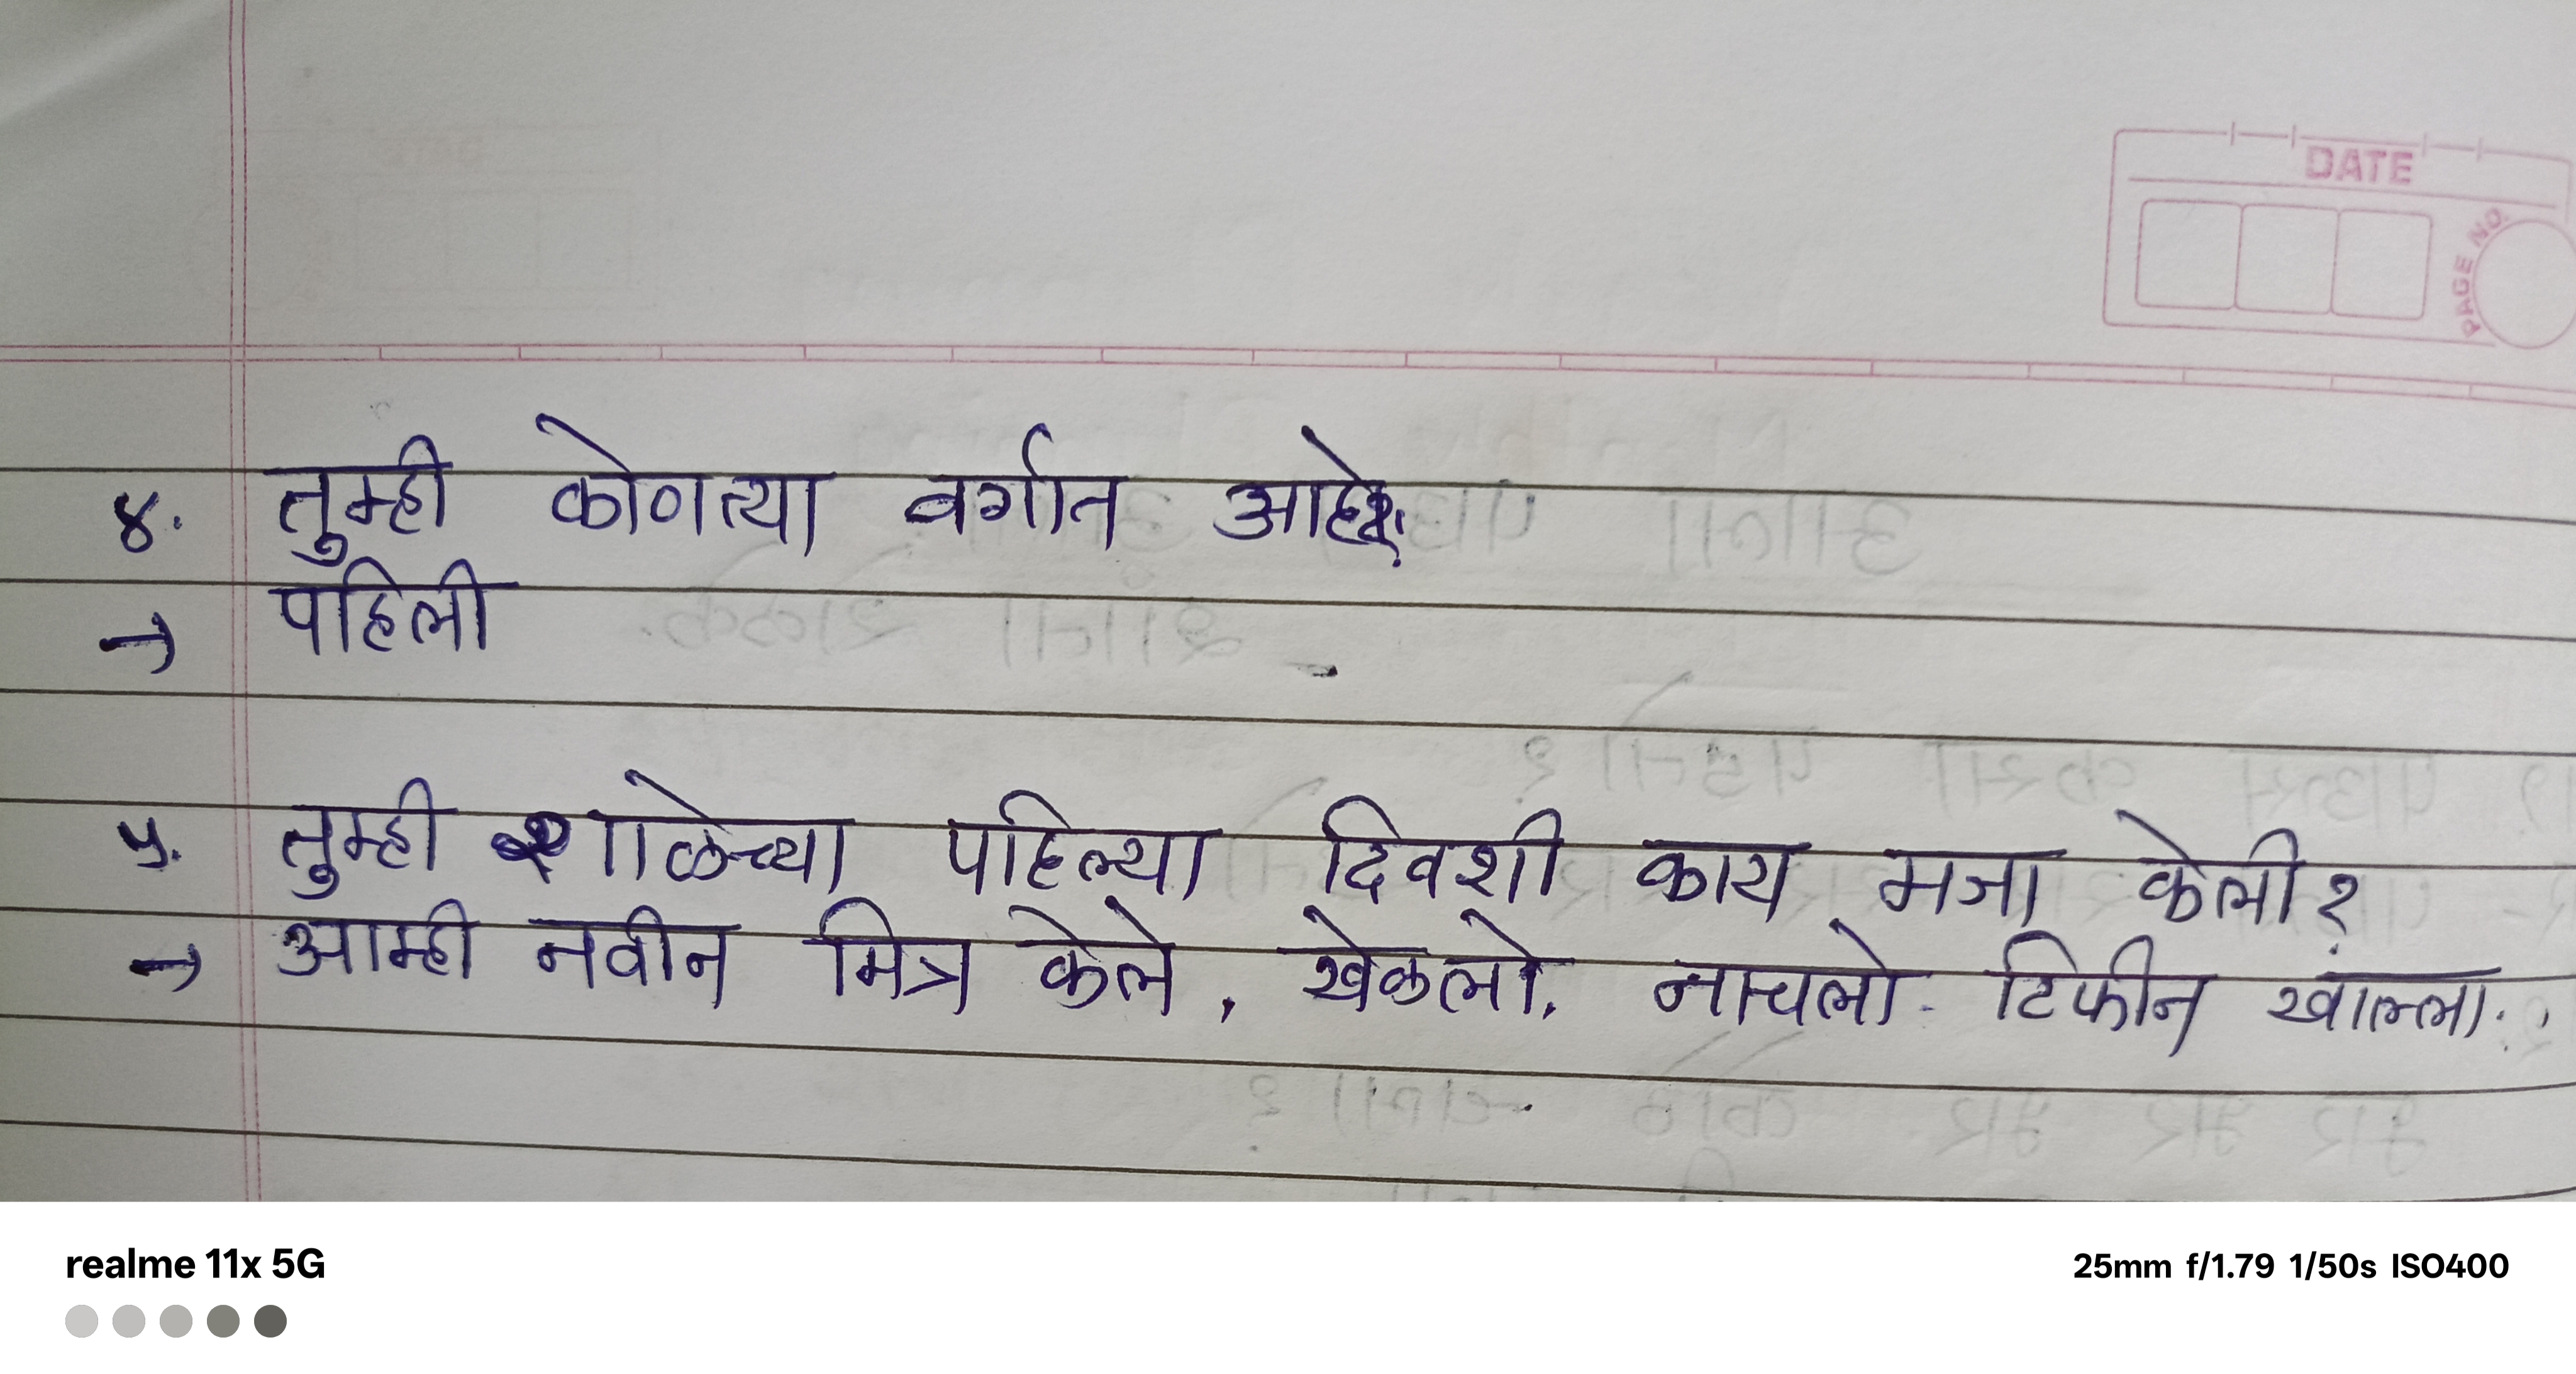 DATE
PAGE NO.
४. तुम्ही कोणत्या वर्गात आहे?
→ पहिली
५. तुम्ही शाळेच्या पहिल्या दिवशी काय मजा केली?
→ आम्ही नवीन मित्र केले, खेळलो, नाचलो. टिफीन खाल्ला.
realme 11x 5G
25mm f/1.79 1/50s ISO400